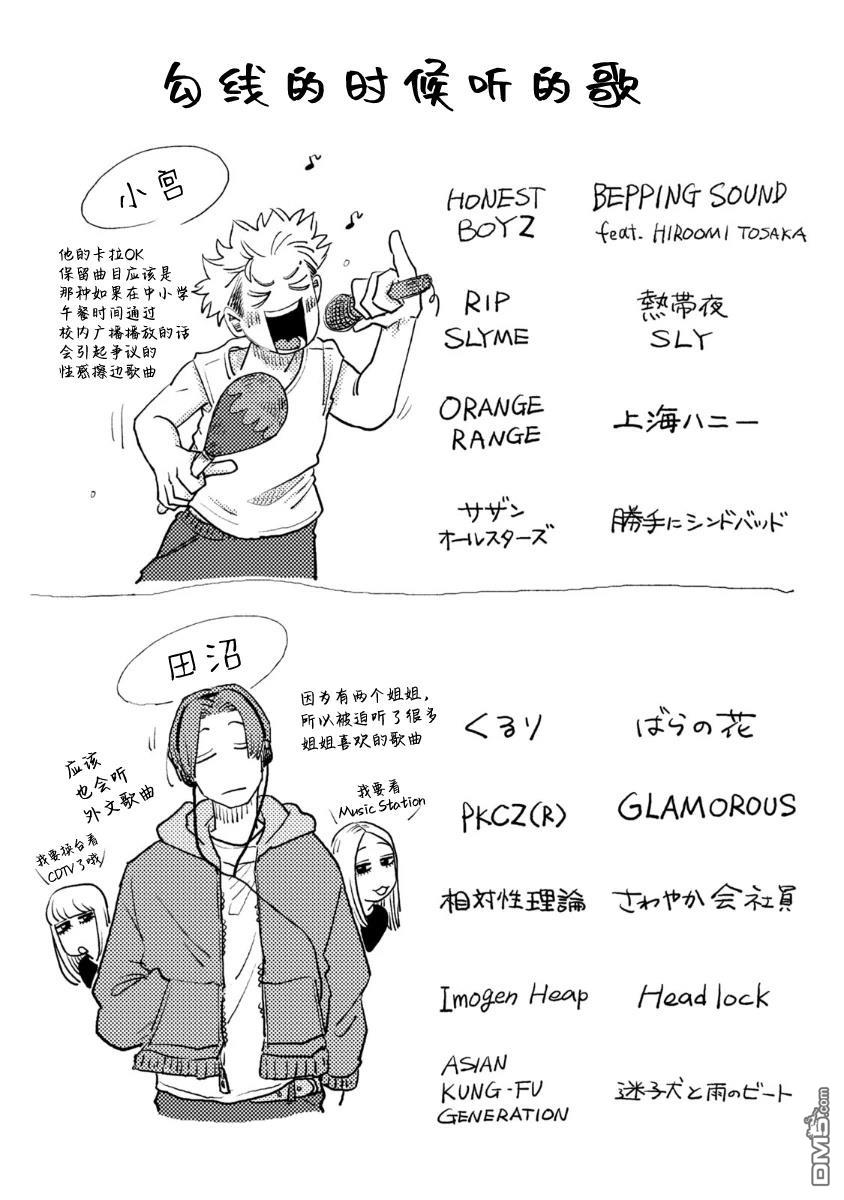 勾线的时候听的歌
小宫
他的卡拉OK
保留曲目应该是
那种如果在中小学
午餐时间通过
校内广播播放的话
会引起争议的
性感擦边歌曲
HONEST
BOYZ
BEPPING SOUND
feat. HIROOMI TOSAKA
RIP
SLYME
熱帯夜
SLY
ORANGE
RANGE
上海ハニー
サザン
オールスターズ
勝手にシンドバッド
田沼
因为有两个姐姐,
所以被迫听了很多
姐姐喜欢的歌曲
应该
也会听
外文歌曲
我要看
Music Station
我要换台看
CDTV了哦
くるり
ばらの花
PKCZ(R)
GLAMOROUS
相対性理論
さわやか会社員
Imogen Heap
Headlock
ASIAN
KUNG-FU
GENERATION
迷子犬と雨のビート
DM5.com